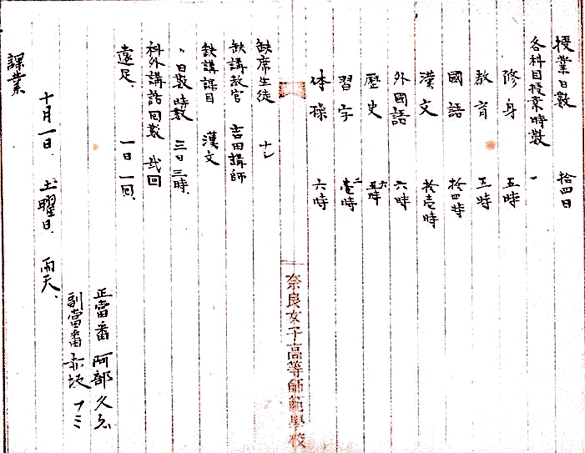 授業日数　拾四日
各科目授業時数
修身　五時
教育　三時
國語　拾四時
漢文　拾壱時
外國語　六時
歴史　五時
習字　壱時
体操　六時
奈良女子高等師範學校
缺席生徒　ナシ
缺講教官　吉田講師
缺講課目　漢文
〃日数時数　三日三時
科外講話回数　弐回
遠足、　一日一回、
正當番　阿部久
副當番　フミ
十月一日、土曜日、雨天、
課業